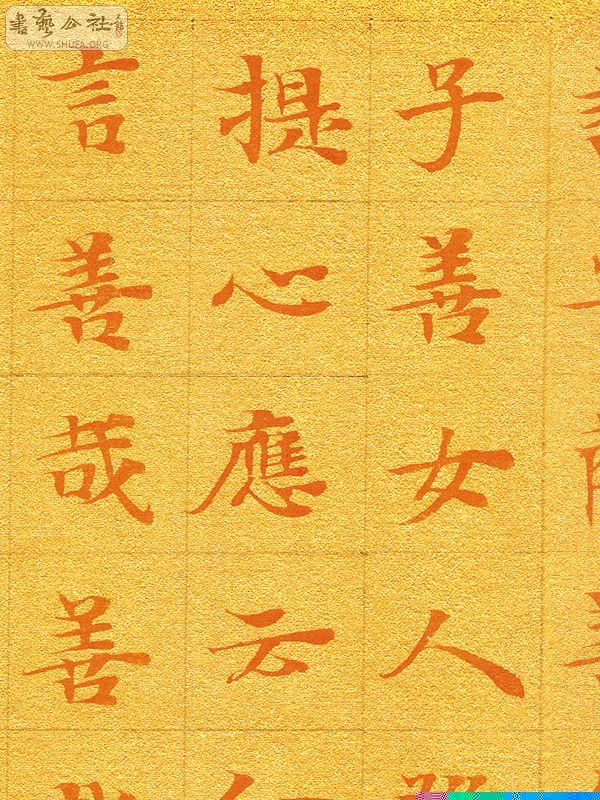 書藝公社
WWW.SHUFA.ORG
子善女人
提心應云
言善哉善